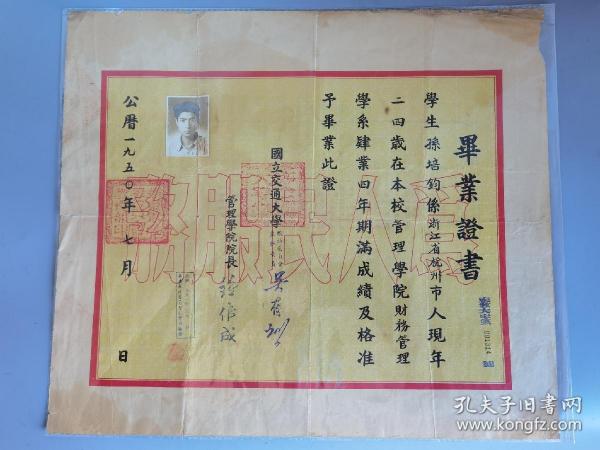 畢業證書
學生孫培鈞係浙江省杭州市人現年
二四歲在本校管理學院財務管理
學系肄業四年期滿成績及格准
予畢業此證
國立交通大學
吳有訓
管理學院院長
鍾偉成
公曆一九五〇年七月 日
為人民服務
孔夫子旧书网
www.kongfz.com